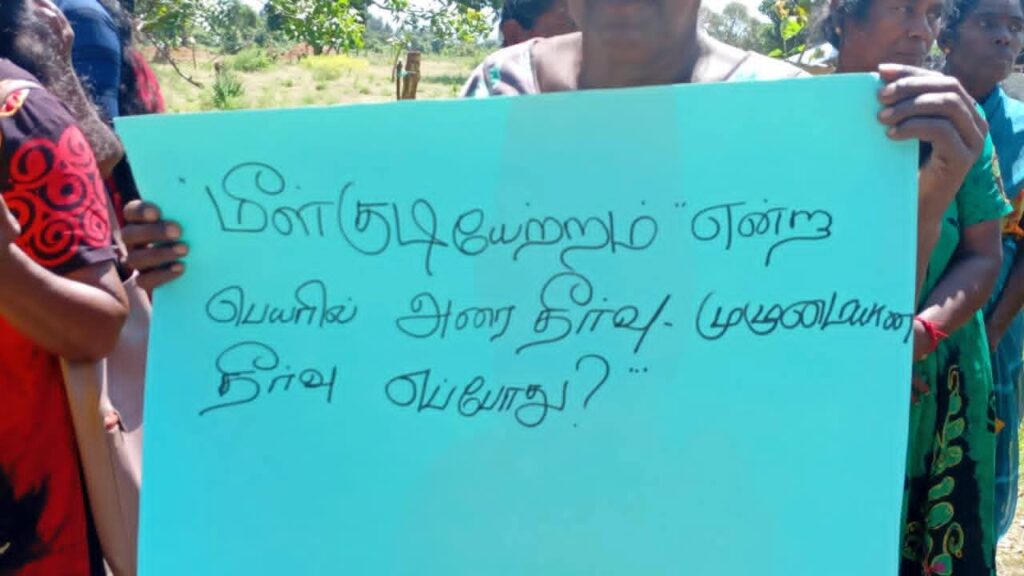 "மீள்குடியேற்றம்" என்ற
பெயரில் அரை தீர்வு- முழுமையான
தீர்வு எப்போது?"...